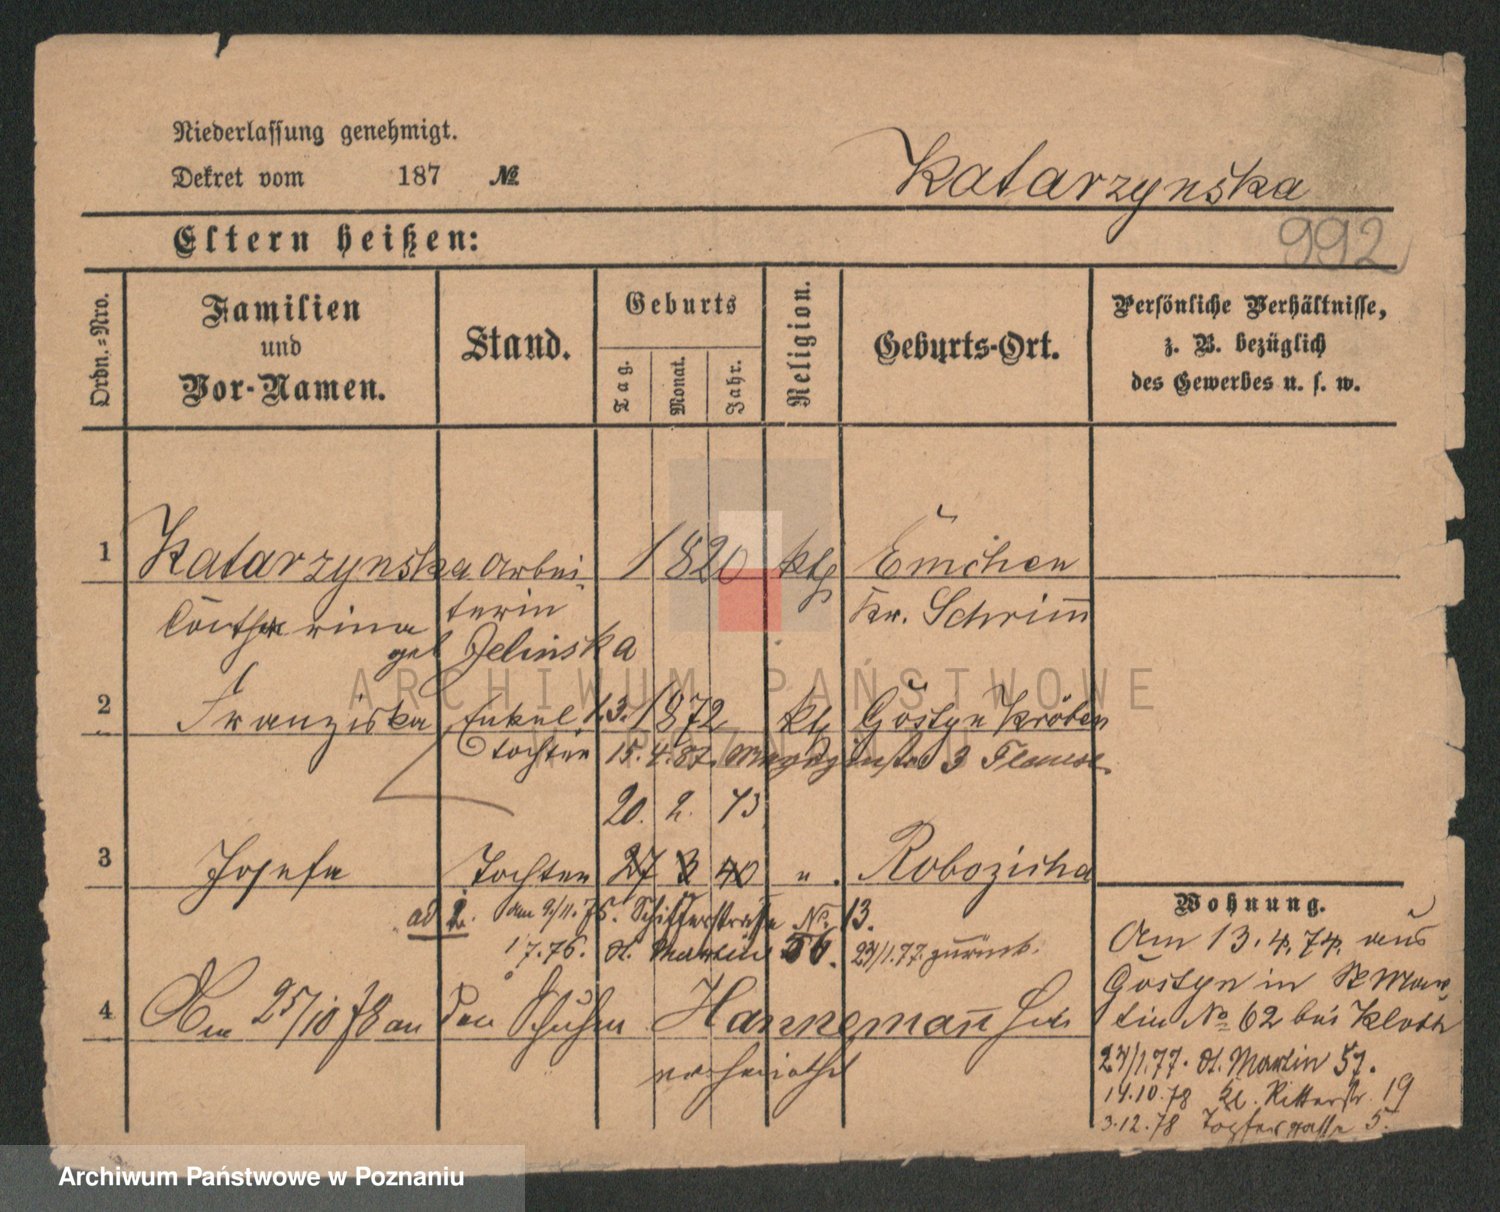 Niederlassung genehmigt.
Dekret vom 187 №
Katarzynska
992
Eltern heißen:
Ordn.-Nro.
Familien
und
Vor-Namen.
Stand.
Geburts
Tag.
Monat.
Jahr.
Religion.
Geburts-Ort.
Persönliche Verhältnisse,
z. B. bezüglich
des Gewerbes u. s. w.
1 Katarzynska Arbei- 1820 ktl Emchen
terin Kr. Schrim̅
geb Jelinska
2 Franziska Enkel 1.3. 1872 ktl Gostyn Kröben
tochter 15.4.87. 3
20. 2. 73
3 Josefa Tochter 27 3 40 " .
ad 2. am 9/11.75. Schifferstraße No. 13.
1 7.76. St. Martin 56. 23/1.77. zurück.
4 Am 25/10 78 an den Hanneman̅
verheirathet
Wohnung.
Am 13.4.74. aus
Gostyn in St Mar
tin No 62 bei
24/1.77. St. Martin 57.
14.10.78 Kl. Ritterstr. 19
3.12.78 Töpfergasse 5.
ARCHIWUM PAŃSTWOWE
Archiwum Państwowe w Poznaniu